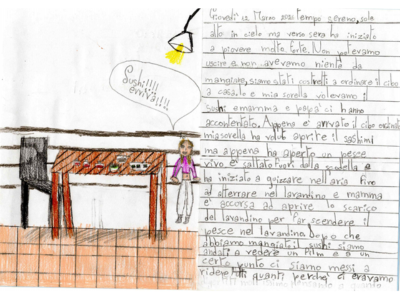 Sushi!!!!
evviva!!!!
Giovedì 12 Marzo 2021 tempo sereno, sole
alto in cielo ma verso sera ha iniziato
a piovere molto forte. Non potevamo
uscire e non avevamo niente da
mangiare, siamo stati costretti a ordinare il cibo
a casa. Io e mia sorella volevamo il
sushi e mamma e papà ci hanno
accontentato. Appena è arrivato il cibo
mia sorella ha voluto aprire il sashimi
ma appena ha aperto un pesce
vivo è saltato fuori dalla
ha iniziato a guizzare nell'aria fino
ad atterrare nel lavandino e mamma
e accorsa ad aprire lo scarico
del lavandino per far scendere il
pesce nel lavandino. Dopo che
abbiamo mangiato il sushi siamo
andati a vedere un film e a un
certo punto ci siamo messi a
ridere tutti quanti perché eravamo